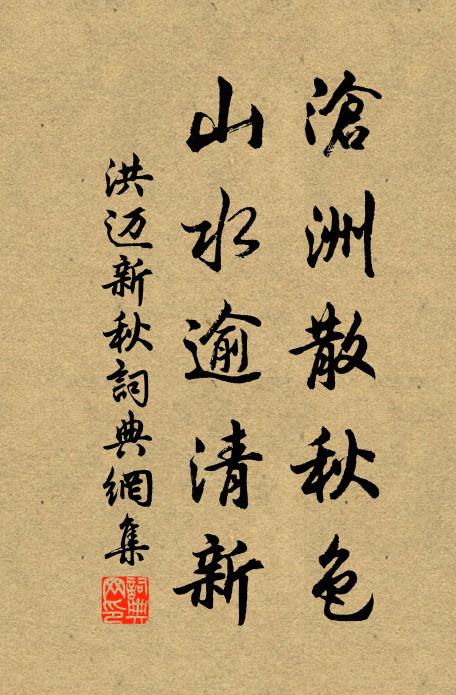 滄洲散秋色
山水逾清新
洪迈新秋詞典網集
詞典网印